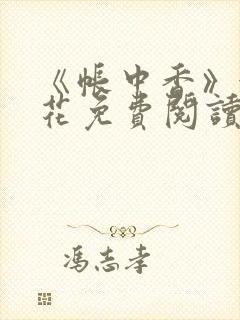 《帐中香》
花免费阅读
冯志孝